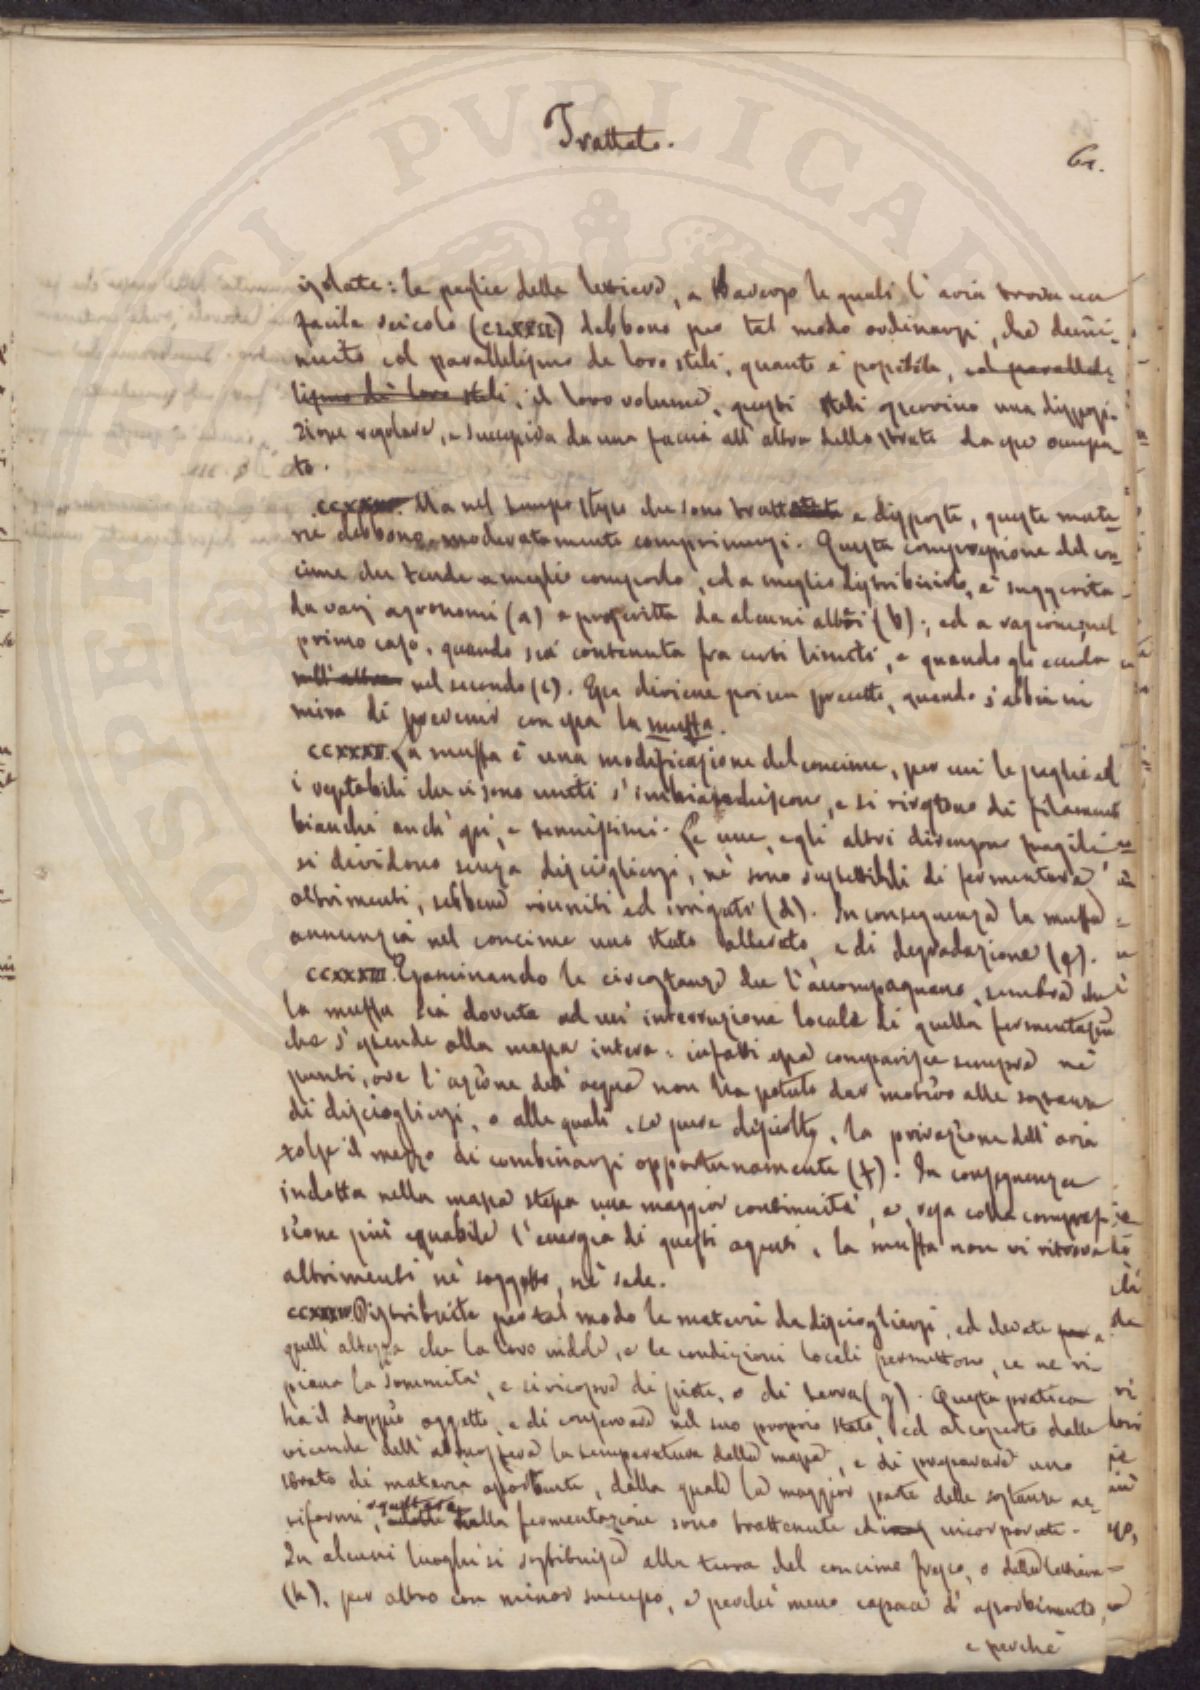 Trattato.
61.
isolate: le paglie delle lettiere, a traverso le quali l'aria trova un
facile veicolo (CLXXII) debbono per tal modo ordinarsi, che dimi-
nuito col parallelismo de loro steli, quanto è possibile, col paralle-
lismo di loro steli, il loro volume, questi steli osservino una disposi-
zione regolare, e successiva da una faccia all'altra dello strato da esse occupa-
to.
Ma nel tempo stesso che sono e disposte, queste mate-
rie debbono moderatamente comprimersi. Questa compressione del con-
cime che tende a meglio comporlo, ed a meglio distribuirlo, è suggerita
da varj agronomi (a) e proscritta da alcuni altri (b); ed a ragione, nel
primo caso, quando sia contenuta fra certi limiti, e quando gli ecceda
nell'altro nel secondo (c). Essa diviene poi un precetto, quando s'abbia in
mira di prevenir con essa la muffa.
CCXXXII. La muffa è una modificazione del concime, per cui le paglie ed
i vegetabili che vi sono uniti s'imbiancano, e si rivestono di filamenti
bianchi anch'essi, e tenuissimi. Le une, e gli altri divengon fragili,
si dividono senza disciogliersi, nè sono suscettibili di fermentare
altrimenti, sebbene riuniti ed irrigati (d). In conseguenza la muffa
annunzia nel concime uno stato alterato, e di degradazione (e).
CCXXXIII. Esaminando le circostanze che l'accompagnano, sembra che
la muffa sia dovuta ad un'interruzione locale di quella fermentazione
che s'estende alla massa intera: infatti essa comparisce sempre ne'
punti, ove l'azione dell'acqua non ha potuto dar motivo alle sostanze
di disciogliersi, o alle quali, se pure disciolte, la privazione dell'aria
tolse il mezzo di combinarsi opportunamente (f). In conseguenza
indotta nella massa stessa una maggior continuità, e resa colla compres-
sione più equabile l'energia di questi agenti, la muffa non vi ritrova
altrimenti nè soggetto, nè sede.
CCXXXIV. Distribuite per tal modo le materie da disciogliersi, ed elevate a
quell'altezza che la loro indole, e le condizioni locali permettono, se ne ri-
piana la sommità, e si ricopre di piote, o di terra (g). Questa pratica
ha il doppio oggetto, e di conservare nel suo proprio stato, ed al coperto dalle
vicende dell'atmosfera la temperatura della massa, e di preparare uno
strato di materia assorbente, dalla quale la maggior parte delle sostanze ae-
riformi, dalla fermentazione sono trattenute ed incorporate.
In alcuni luoghi si sostituisce alla terra del concime fresco, o delle lettiere
(h), per altro con minor successo, e perchè meno capaci d'assorbimento,
e perchè